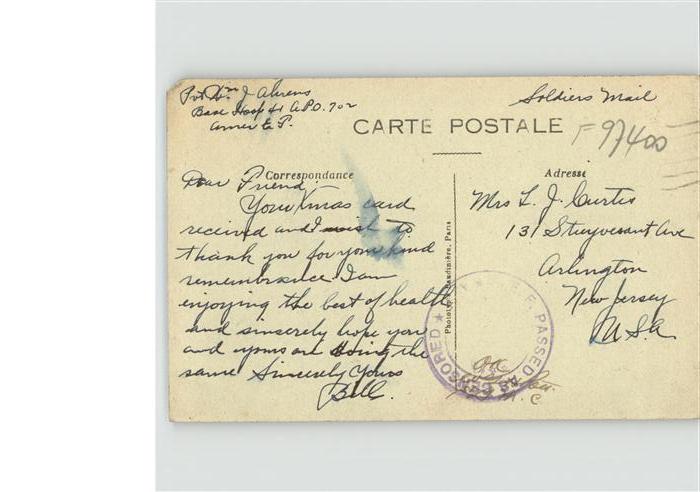 Pvt Wm J Ahrens
Base Hosp 41 A.P.O. 702
Amer E. F.
Soldiers Mail
CARTE POSTALE
F97400
Correspondance
Adresse
Dear Friend
Your Xmas card
received and I wish to
thank you for your kind
remembrance I am
enjoying the best of health
and sincerely hope you
and yours are doing the
same Sincerely Yours
Bill.
Mrs L. J. Curtis
131 Stuyvesant Ave
Arlington
New Jersey
U.S.A
Paris
PASSED AS CENSORED
OK